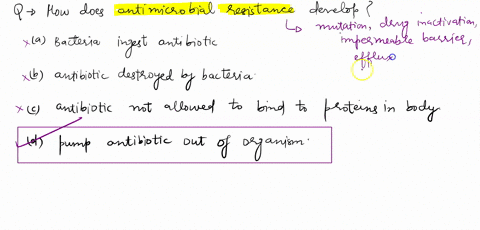 Q → How does antimicrobial resistance develop?
↳ mutation, drug inactivation,
impermeable barrier,
efflux
x (a) Bacteria ingest antibiotic
x (b) antibiotic destroyed by bacteria.
x (c) antibiotic not allowed to bind to proteins in body
✓ (d) pump antibiotic out of organism.